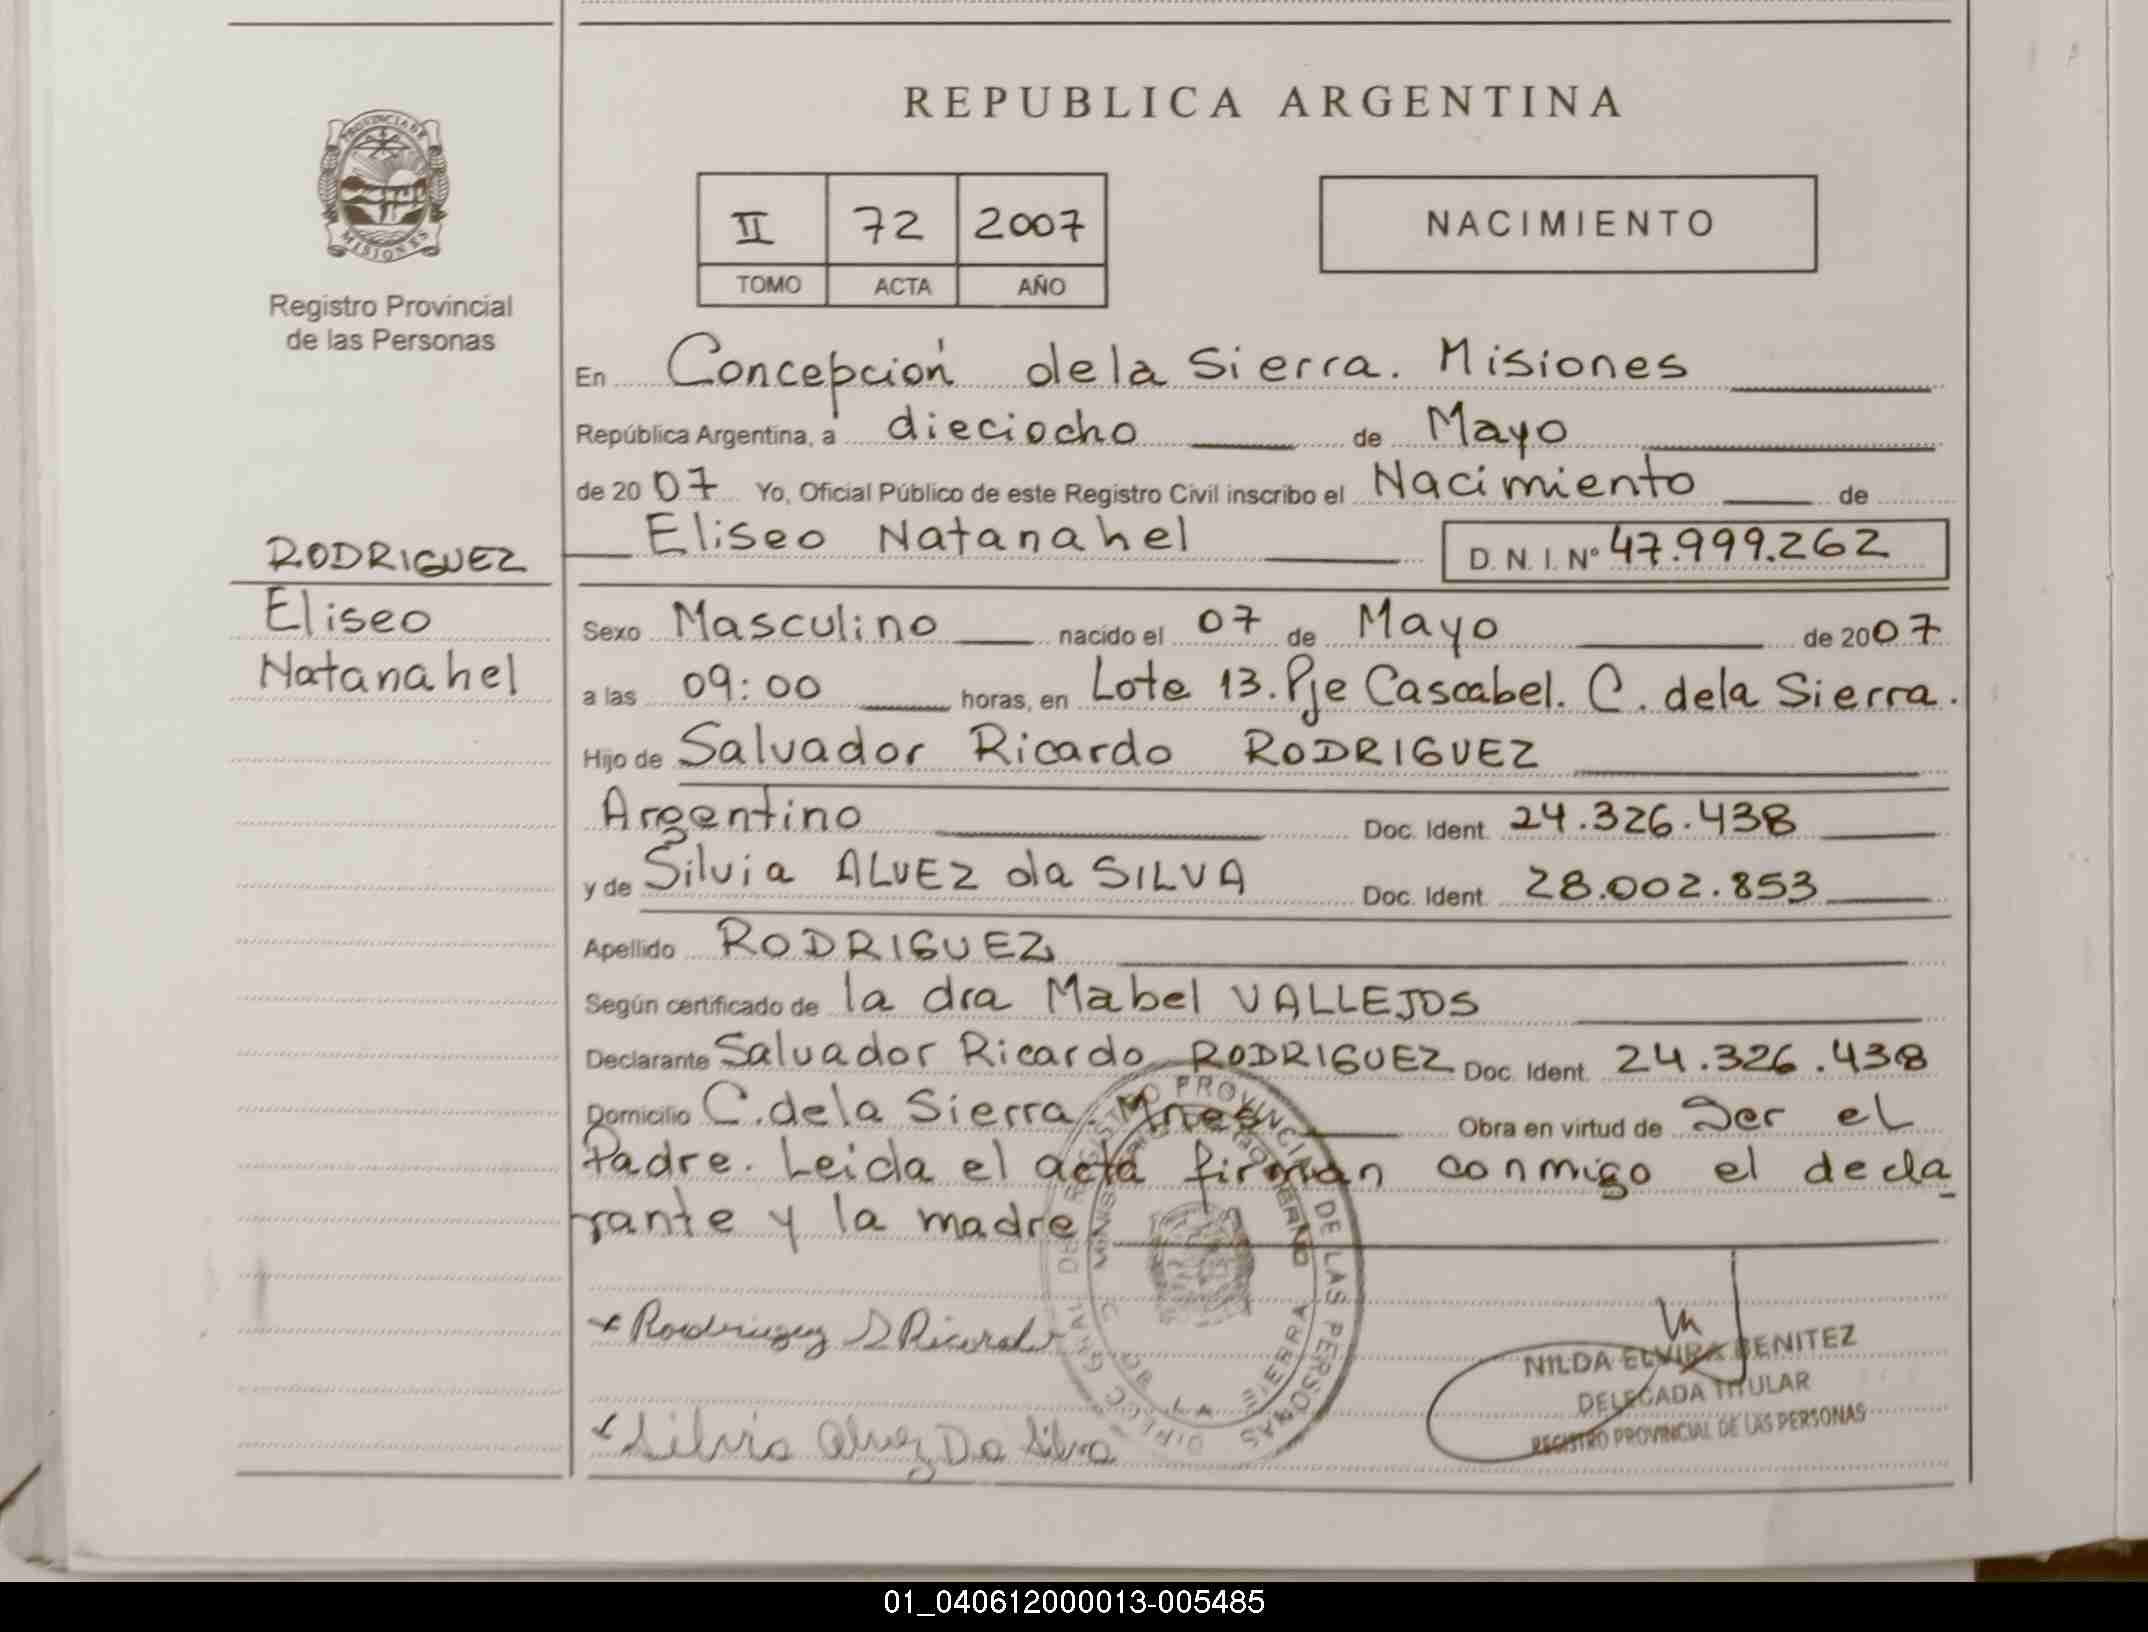 REPUBLICA ARGENTINA
PROVINCIA DE
MISIONES
Registro Provincial
de las Personas
II 72 2007
TOMO ACTA AÑO
NACIMIENTO
En Concepción de la Sierra. Misiones
República Argentina, a dieciocho de Mayo
de 2007 Yo, Oficial Público de este Registro Civil inscribo el Nacimiento de
Eliseo Natanahel D. N. I. Nº 47.999.262
RODRIGUEZ
Eliseo
Natanahel
Sexo Masculino nacido el 07 de Mayo de 2007
a las 09:00 horas, en Lote 13. Pje Cascabel. C. de la Sierra.
Hijo de Salvador Ricardo RODRIGUEZ
Argentino Doc. Ident. 24.326.438
y de Silvia ALVEZ da SILVA Doc. Ident. 28.002.853
Apellido RODRIGUEZ
Según certificado de la dra Mabel VALLEJOS
Declarante Salvador Ricardo RODRIGUEZ Doc. Ident. 24.326.438
Domicilio C. de la Sierra. Mnes Obra en virtud de Ser el
Padre. Leida el acta firman conmigo el decla
rante y la madre
x Rodriguez S Ricardo
x Silvia Alvez Da Silva
DIREC. GRAL. DEL REGISTRO PROVINCIAL DE LAS PERSONAS
C. DE LA SIERRA
NILDA ELVIRA BENITEZ
DELEGADA TITULAR
REGISTRO PROVINCIAL DE LAS PERSONAS
01_040612000013-005485